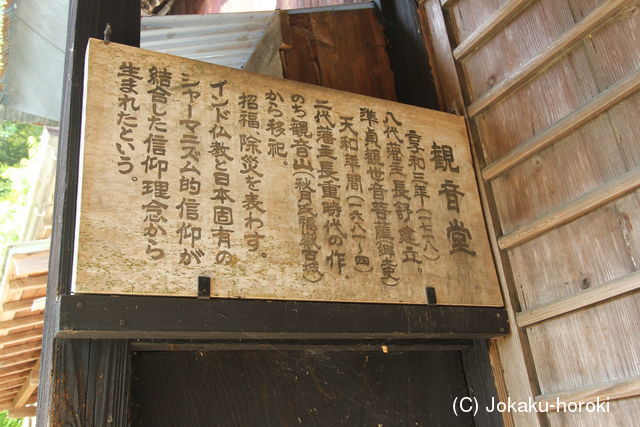 観音堂
享和三年(一七八)
八代藩主長舒建立。
準貞観世音菩薩
天和年間(一六八一~四)
二代藩主長重時代の作
のち観音山(秋月氏
から移祀。
招福除災を表わす。
インド仏教と日本固有の
シャーマニズム的信仰が
結合した信仰理念から
生まれたという。
(C) Jokaku-horoki